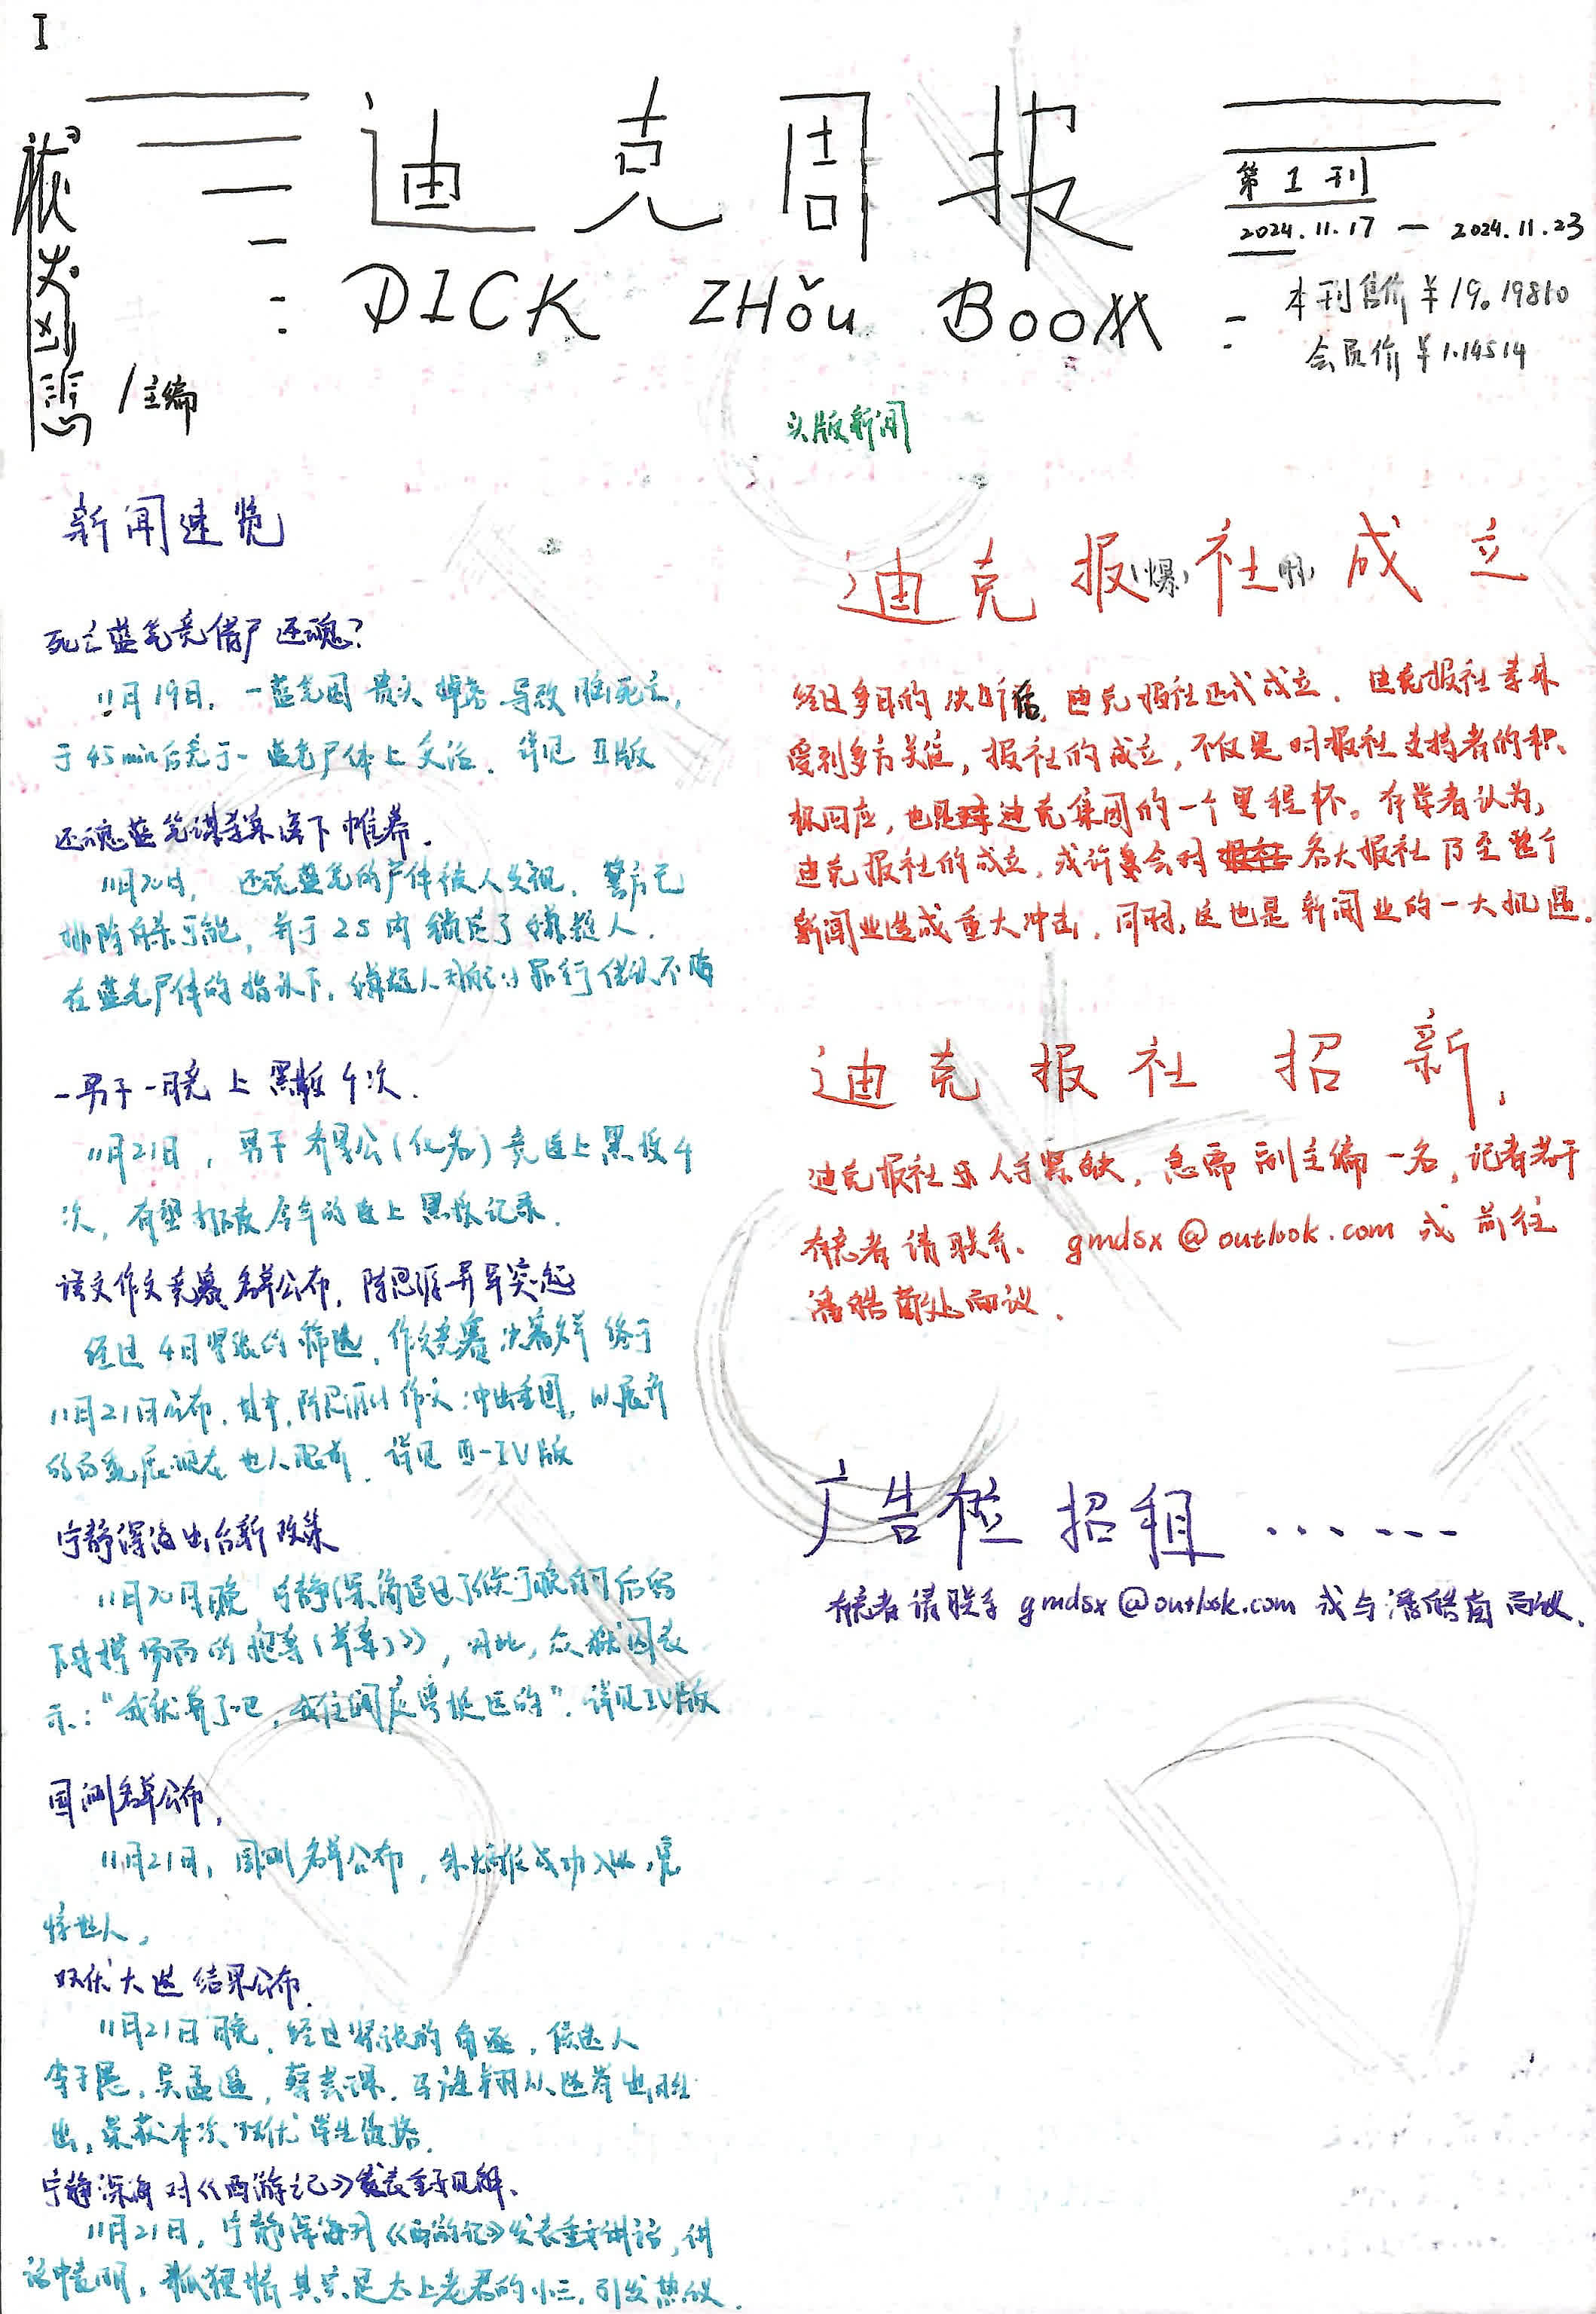 I
迪克周报
DICK ZHǒu BOOK
第1刊
2024.11.17 — 2024.11.23
本刊售价¥19.19810
会员价¥1.14514
/主编
头版新闻
新闻速览
死亡蓝笔竟借尸还魂?
11月19日,一蓝笔因 导致脑死亡,
于45min后竟于一蓝笔尸体上复活.详见II版
还魂蓝笔谋杀案落下帷幕.
11月20日, 还魂蓝笔的尸体被人发现.警方已
排除自杀可能,并于25内锁定了嫌疑人.
在蓝笔尸体的指认下,嫌疑人对 罪行供认不讳
一男子一晚上黑板4次.
11月21日,男子 (化名)竟连上黑板4
次,有望打破今年的连上黑板记录.
语文作文竞赛名单公布,陈思 异军突起
经过4日紧张的筛选,作文竞赛决赛名单终于
11月21日公布.其中,陈思 作文 冲出重围,以
的 详见III-IV版
宁静深海出台新政策
11月20日晚,宁静深海通过了《关于晚自习后
的 (草案)》,对此,众 表
示:“我就算了吧, 挺 的”.详见IV版
国测名单公布.
11月21日,国测名单公布, 成功入选,震
惊世人.
双优大选结果公布.
11月21日晚,经过紧张的角逐,候选人
李子 ,吴孟遥,蔡 , 从选举中胜
出,荣获本次双优学生资格.
宁静深海对《西游记》发表重要见解.
11月21日,宁静深海对《西游记》发表重要讲话,讲
话中表明,狐狸精其实是太上老君的小三,引发热议.
迪克报(爆)社(啊)成立
经过多日的 后,迪克报社正式成立.迪克报社素来
受到多方关注,报社的成立,不仅是对报社支持者的积
极回应,也是 迪克集团的一个里程杯。有学者认为,
迪克报社的成立,或许 会对 各大报社乃至整个
新闻业造成重大冲击.同时,这也是新闻业的一大机遇.
迪克报社招新.
迪克报社 人手紧缺,急需副主编一名,记者若干
有意者请联系、gmdsx@outlook.com或前往
潘皓 处面议.
广告位招租……
有意者请联系gmdsx@outlook.com或与潘皓 面议.